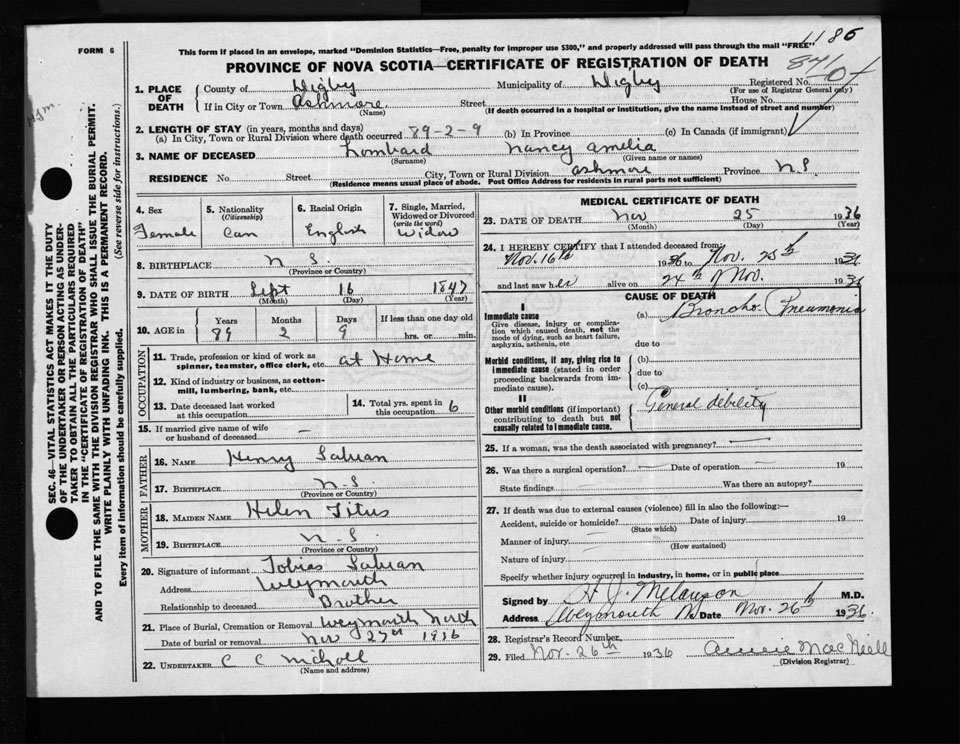 FORM 6
This form if placed in an envelope, marked "Dominion Statistics—Free, penalty for improper use $300," and properly addressed will pass through the mail "FREE"
1186
PROVINCE OF NOVA SCOTIA—CERTIFICATE OF REGISTRATION OF DEATH
SEC. 46—VITAL STATISTICS ACT MAKES IT THE DUTY
OF THE UNDERTAKER OR PERSON ACTING AS UNDER-
TAKER TO OBTAIN ALL THE PARTICULARS REQUIRED
IN THE "CERTIFICATE OF REGISTRATION OF DEATH"
AND TO FILE THE SAME WITH THE DIVISION REGISTRAR WHO SHALL ISSUE THE BURIAL PERMIT.
WRITE PLAINLY WITH UNFADING INK. THIS IS A PERMANENT RECORD.
Every item of information should be carefully supplied. (See reverse side for instructions.)
1. PLACE OF DEATH County of Digby Municipality of Digby Registered No.
(For use of Registrar General only)
If in City or Town Ashmore Street House No.
(Name) (If death occurred in a hospital or institution, give the name instead of street and number)
2. LENGTH OF STAY (in years, months and days)
(a) In City, Town or Rural Division where death occurred 89-2-9 (b) In Province (c) In Canada (if immigrant)
3. NAME OF DECEASED Lombard Nancy Amelia
(Surname) (Given name or names)
RESIDENCE No. Street City, Town or Rural Division Ashmore Province N.S.
(Residence means usual place of abode. Post Office Address for residents in rural parts not sufficient)
4. Sex Female
5. Nationality (Citizenship) Can
6. Racial Origin English
7. Single, Married, Widowed or Divorced (write the word) Widow
8. BIRTHPLACE N S.
(Province or Country)
9. DATE OF BIRTH Sept 16 1847
(Month) (Day) (Year)
10. AGE in Years Months Days If less than one day old
89 2 9 hrs. or min.
OCCUPATION
11. Trade, profession or kind of work as
spinner, teamster, office clerk, etc. at Home
12. Kind of industry or business, as cotton-
mill, lumbering, bank, etc.
13. Date deceased last worked
at this occupation
14. Total yrs. spent in
this occupation 6
15. If married give name of wife
or husband of deceased —
FATHER
16. NAME Henry Sabian
17. BIRTHPLACE N.S.
(Province or Country)
MOTHER
18. MAIDEN NAME Helen Titus
19. BIRTHPLACE N.S.
(Province or Country)
20. Signature of informant Tobias Sabian
Address Weymouth
Relationship to deceased Brother
21. Place of Burial, Cremation or Removal Weymouth North
Date of burial or removal Nov 27th 1936
22. UNDERTAKER C C Nicholl
(Name and address)
MEDICAL CERTIFICATE OF DEATH
23. DATE OF DEATH Nov 25 1936
(Month) (Day) (Year)
24. I HEREBY CERTIFY that I attended deceased from
Nov. 16th 1936 to Nov. 25th 1936
and last saw her alive on 24th Nov. 1936
CAUSE OF DEATH
I
Immediate cause
Give disease, injury or complica-
tion which caused death, not the
mode of dying, such as heart failure,
asphyxia, asthenia, etc
(a) Broncho. Pneumonia
due to
Morbid conditions, if any, giving rise to
immediate cause (stated in order
proceeding backwards from im-
mediate cause).
(b)
due to
(c)
II
Other morbid conditions (if important)
contributing to death but not
causally related to immediate cause.
General debility
25. If a woman, was the death associated with pregnancy? —
26. Was there a surgical operation? — Date of operation — 19
State findings Was there an autopsy?
27. If death was due to external causes (violence) fill in also the following:—
Accident, suicide or homicide? Date of injury 19
(State which)
Manner of injury
(How sustained)
Nature of injury
Specify whether injury occurred in industry, in home, or in public place
Signed by H J. Melanson M.D.
Address Weymouth NS Date Nov. 26th 1936.
28. Registrar's Record Number
29. Filed Nov. 26th 1936 Annie MacNeill
(Division Registrar)